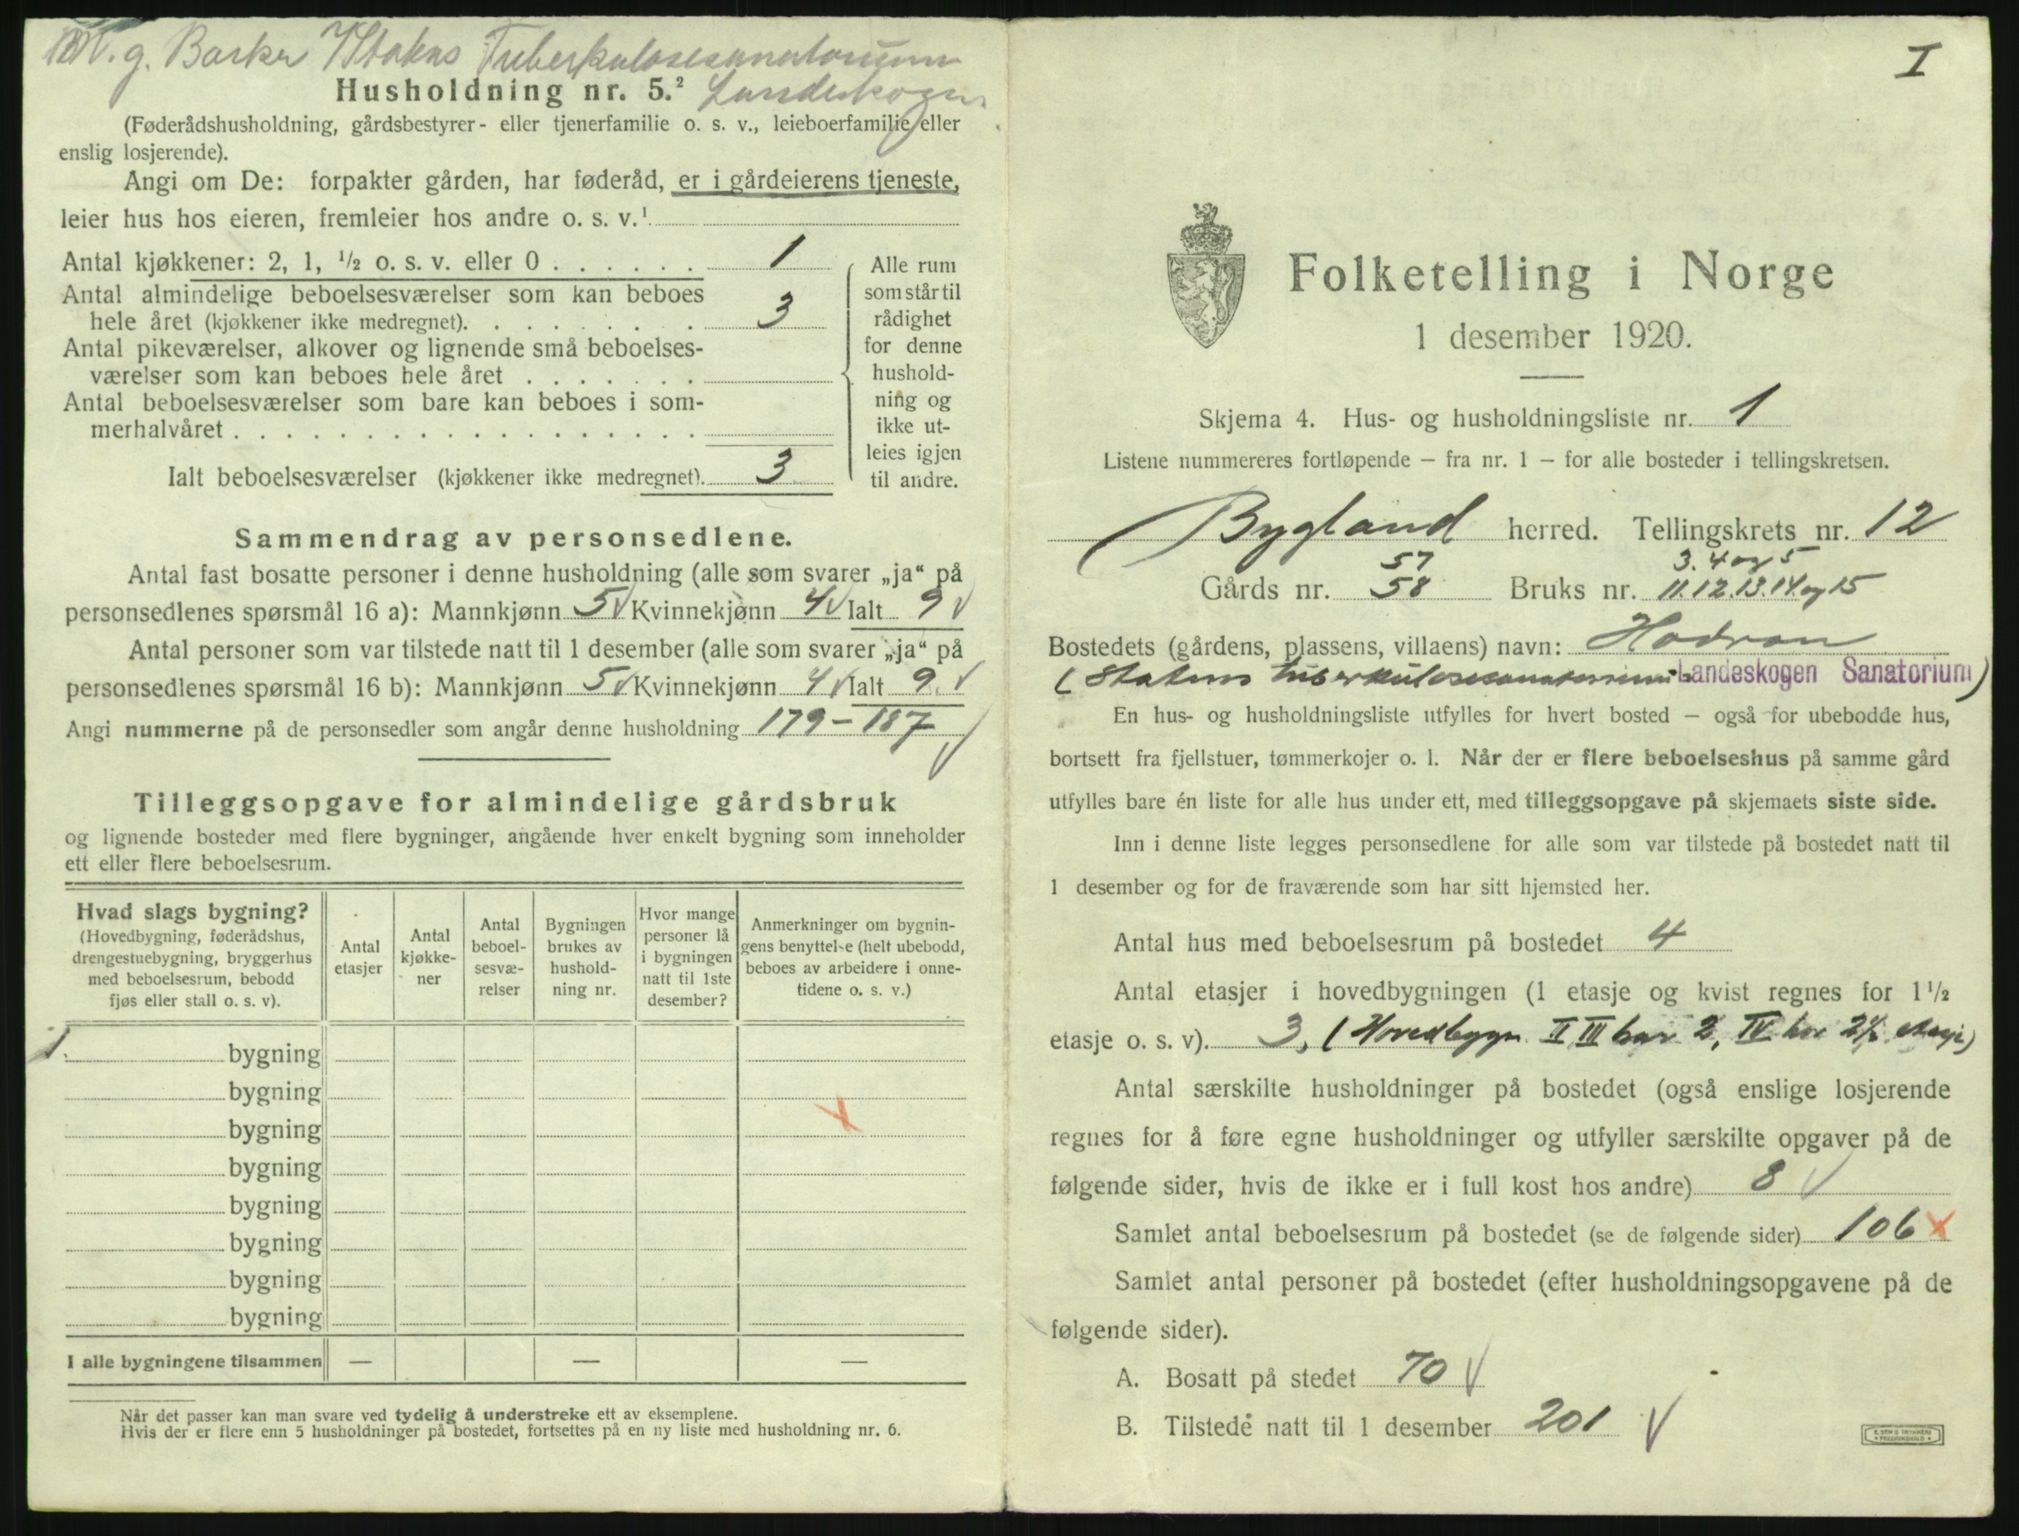 g. Barker Statens Tuberkulosesanatorium
Husholdning nr. 5.² Landeskogen
(Føderådshusholdning, gårdsbestyrer- eller tjenerfamilie o. s. v., leieboerfamilie eller
enslig losjerende).
Angi om De: forpakter gården, har føderåd, er i gårdeierens tjeneste,
leier hus hos eieren, fremleier hos andre o. s. v.¹
Antal kjøkkener: 2, 1, ½ o. s. v. eller 0 . . . . . . 1
Antal almindelige beboelsesværelser som kan beboes
hele året (kjøkkener ikke medregnet). . . . . . . . 3
Antal pikeværelser, alkover og lignende små beboelses-
værelser som kan beboes hele året . . . . . . .
Antal beboelsesværelser som bare kan beboes i som-
merhalvåret . . . . . . . . . . . . . . . . . .
Ialt beboelsesværelser (kjøkkener ikke medregnet). 3
Alle rum
som står til
rådighet
for denne
hushold-
ning og
ikke ut-
leies igjen
til andre.
Sammendrag av personsedlene.
Antal fast bosatte personer i denne husholdning (alle som svarer „ja“ på
personsedlenes spørsmål 16 a): Mannkjønn 5 Kvinnekjønn 4 Ialt 9
Antal personer som var tilstede natt til 1 desember (alle som svarer „ja“ på
personsedlenes spørsmål 16 b): Mannkjønn 5 Kvinnekjønn 4 Ialt 9
Angi nummerne på de personsedler som angår denne husholdning 179 – 187
Tilleggsopgave for almindelige gårdsbruk
og lignende bosteder med flere bygninger, angående hver enkelt bygning som inneholder
ett eller flere beboelsesrum.
Hvad slags bygning?
(Hovedbygning, føderådshus,
drengestuebygning, bryggerhus
med beboelsesrum, bebodd
fjøs eller stall o. s. v).
Antal
etasjer
Antal
kjøkke-
ner
Antal
beboel-
sesvæ-
relser
Bygningen
brukes av
hushold-
ning nr.
Hvor mange
personer lå
i bygningen
natt til 1ste
desember?
Anmerkninger om bygnin-
gens benyttelse (helt ubebodd,
beboes av arbeidere i onne-
tidene o. s. v.)
1. bygning
bygning
bygning
bygning
bygning
bygning
bygning
bygning
I alle bygningene tilsammen — — —
Når det passer kan man svare ved tydelig å understreke ett av eksemplene.
Hvis der er flere enn 5 husholdninger på bostedet, fortsettes på en ny liste med husholdning nr. 6.
I
Folketelling i Norge
1 desember 1920.
Skjema 4. Hus- og husholdningsliste nr. 1
Listene nummereres fortløpende – fra nr. 1 – for alle bosteder i tellingskretsen.
Bygland herred. Tellingskrets nr. 12
57 3. 4 og 5
Gårds nr. 58 Bruks nr. 11.12.13.14 og 15
Bostedets (gårdens, plassens, villaens) navn: Hodron
(Statens tuberkulosesanatorium Landeskogen Sanatorium)
En hus- og husholdningsliste utfylles for hvert bosted – også for ubebodde hus,
bortsett fra fjellstuer, tømmerkojer o. l. Når der er flere beboelseshus på samme gård
utfylles bare én liste for alle hus under ett, med tilleggsopgave på skjemaets siste side.
Inn i denne liste legges personsedlene for alle som var tilstede på bostedet natt til
1 desember og for de fraværende som har sitt hjemsted her.
Antal hus med beboelsesrum på bostedet 4
Antal etasjer i hovedbygningen (1 etasje og kvist regnes for 1½
etasje o. s. v). 3, (Hovedbygn. II III har 2, IV har 2½ etasje)
Antal særskilte husholdninger på bostedet (også enslige losjerende
regnes for å føre egne husholdninger og utfyller særskilte opgaver på de
følgende sider, hvis de ikke er i full kost hos andre) 8
Samlet antal beboelsesrum på bostedet (se de følgende sider) 106
Samlet antal personer på bostedet (efter husholdningsopgavene på de
følgende sider).
A. Bosatt på stedet 70
B. Tilstede natt til 1 desember 201